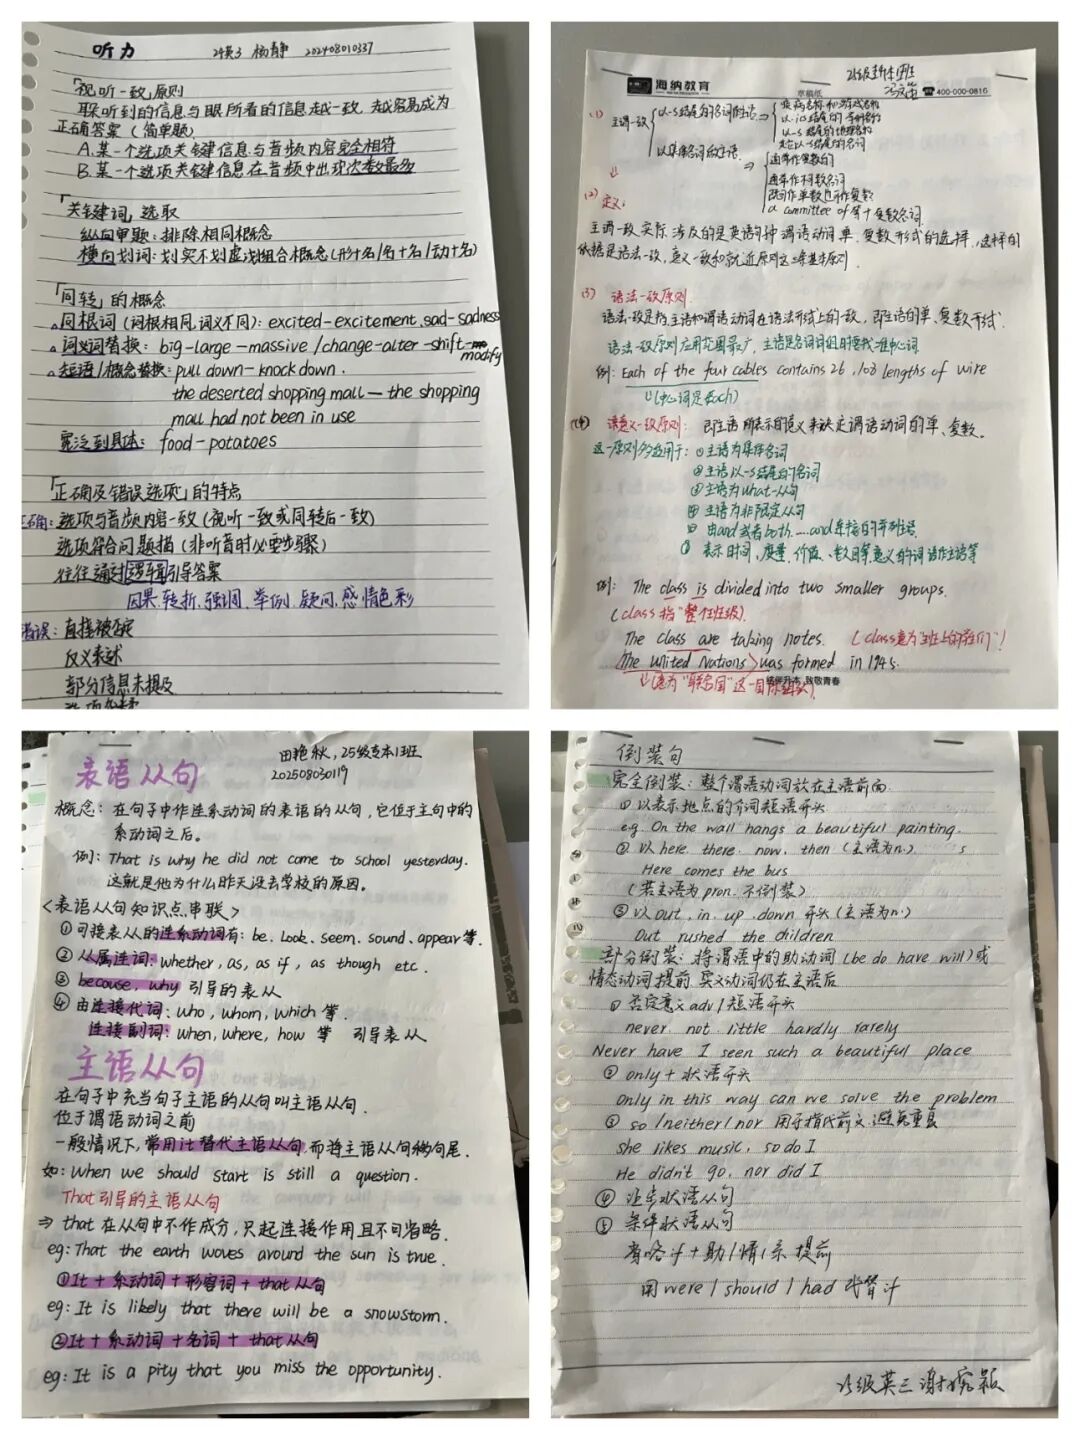 听力 24英3 杨静 202408010337
「视听一致」原则
耳所听到的信息与眼所看的信息越一致,越容易成为
正确答案(简单题)
A.某一个选项关键信息与音频内容完全相符
B.某一个选项关键信息在音频中出现次数最多
「关键词」选取
纵向审题:排除相同概念
横向划词:划实不划虚,划组合概念(形+名/名+名/动+名)
「同转」的概念
同根词(词根相同,词义不同):excited-excitement,sad-sadness
词义词替换:big-large-massive/change-alter-shift-modify
短语/概念替换:pull down-knock down.
the deserted shopping mall—the shopping
mall had not been in use
宽泛到具体:food-potatoes
「正确及错误选项」的特点
正确:选项与音频内容一致(视听一致或同转后一致)
选项符合问题描(非听音时必要步骤)
往往通过逻辑引导答案
因果,转折,强调,举例,疑问,感情色彩
错误:直接被否定
反义表述
部分信息未提及
海纳教育
草稿纸
400-000-0816
(1) 主谓一致
以-s结尾的名词作主语
疾病名称和游戏名称
以-ics结尾的学科名称
以-s结尾的地理名称
其它以-s结尾的名词
以集体名词做主语
通常作复数的
通常作不可数名词
既可作单数也可作复数
a committee of等+复数名词
(2) 定义:
主谓一致实际涉及的是英语句种谓语动词单、复数形式的选择,选择的
依据是语法一致,意义一致和就近原则这三条基本原则.
(3) 语法一致原则
语法一致是指主语和谓语动词在语法形式上的一致,即主语的单、复数形式.
语法一致原则应用范围最广,主语是名词词组时要找准中心词.
例:Each of the four cables contains 26,108 lengths of wire
(中心词是each)
(4) 语意义一致原则:即主语所表示的意义来决定谓语动词的单、复数。
这一原则多适用于:①主语为集体名词
②主语以-s结尾的名词
③主语为what-从句
④主语为非限定从句
⑤由and或者both……and连接的并列主语
⑥表示时间、度量、价值、数目等意义的词语作主语等
例:The class is divided into two smaller groups.
(class指“整个班级)
The class are taking notes. (class意为“班上的学生们”)
The United Nations was formed in 1945.
(意为“联合国”这一国际组织)
致敬青春
表语从句 田艳秋,25级专本1班
202508030119
概念:在句子中作连系动词的表语的从句,它位于主句中的
系动词之后。
例:That is why he did not come to school yesterday.
这就是他为什么昨天没去学校的原因。
<表语从句知识点串联>
①可接表从的连系动词有:be、look、seem、sound、appear等.
②从属连词:whether,as,as if,as though etc.
③because,why引导的表从
④由连接代词:who,whom,which等.
连接副词:when,where,how等 引导表从
主语从句
在句子中充当句子主语的从句叫主语从句.
位于谓语动词之前
一般情况下,常用it替代主语从句,而将主语从句移句尾.
如:When we should start is still a question.
That引导的主语从句
⇒that在从句中不作成分,只起连接作用且不可省略.
eg:That the earth woves around the sun is true.
①It+系动词+形容词+that从句
eg:It is likely that there will be a snowstorm.
②It+系动词+名词+that从句
eg:It is a pity that you miss the opportunity.
倒装句
完全倒装:整个谓语动词放在主语前面.
①以表示地点的介词短语开头
eg. On the wall hangs a beautiful painting.
②以here. there. now. then(主语为n.) s
Here comes the bus
(若主语为pron.不倒装)
③以out.in.up.down开头(主语为n.)
Out rushed the children
部分倒装:将谓语中的助动词(be do have will)或
情态动词提前 实义动词仍在主语后
①否定意义adv/短语开头
never not little hardly rarely
Never have I seen such a beautiful place
②only+状语开头
Only in this way can we solve the problem
③so/neither/nor 用于指代前文,避免重复
She likes music, so do I
He didn't go, nor did I
④让步状语从句
⑤条件状语从句
省略if+助/情/系提前
用were/should/had代替if
25级英三